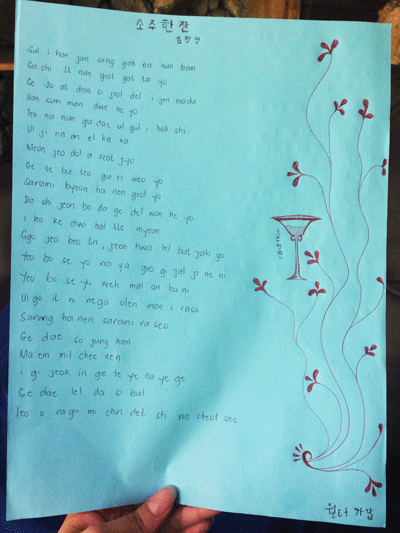 소주한잔
임창정
Sul i han jan seng gak na nun bam
Ga chi it nun geot gat ta yo
Ge jo at deon si jeol del i, jen modu
Han sum man dwe ne yo
Teo na nun gu dae ul gul, hok shi
Ul ji na an el ka na
Meon jeo dol a seot jyo
Ge te bu teo gu ri weo yo
Sarami byeon ha nen geol yo
Da shi jeon bo da ge del won he yo
i leo ke chwi hal tte myeon
Ggo jeo beo lin, jeon hwa lel but jab go
Yeo bo se yo na ya geo gi jal ji ne ni
Yeo bo se yo weh mal an ha ni
Ul go it ni nega olen man i raso
Sarang ha nen sarami ra seo
Ge dae so jung han
Ma em mil cheo nen
i gi jeok in ge te ye na ye ge
Ge dae lel da si bul
leo o ra go mi chin det sh we cheot seo
원터 가갑